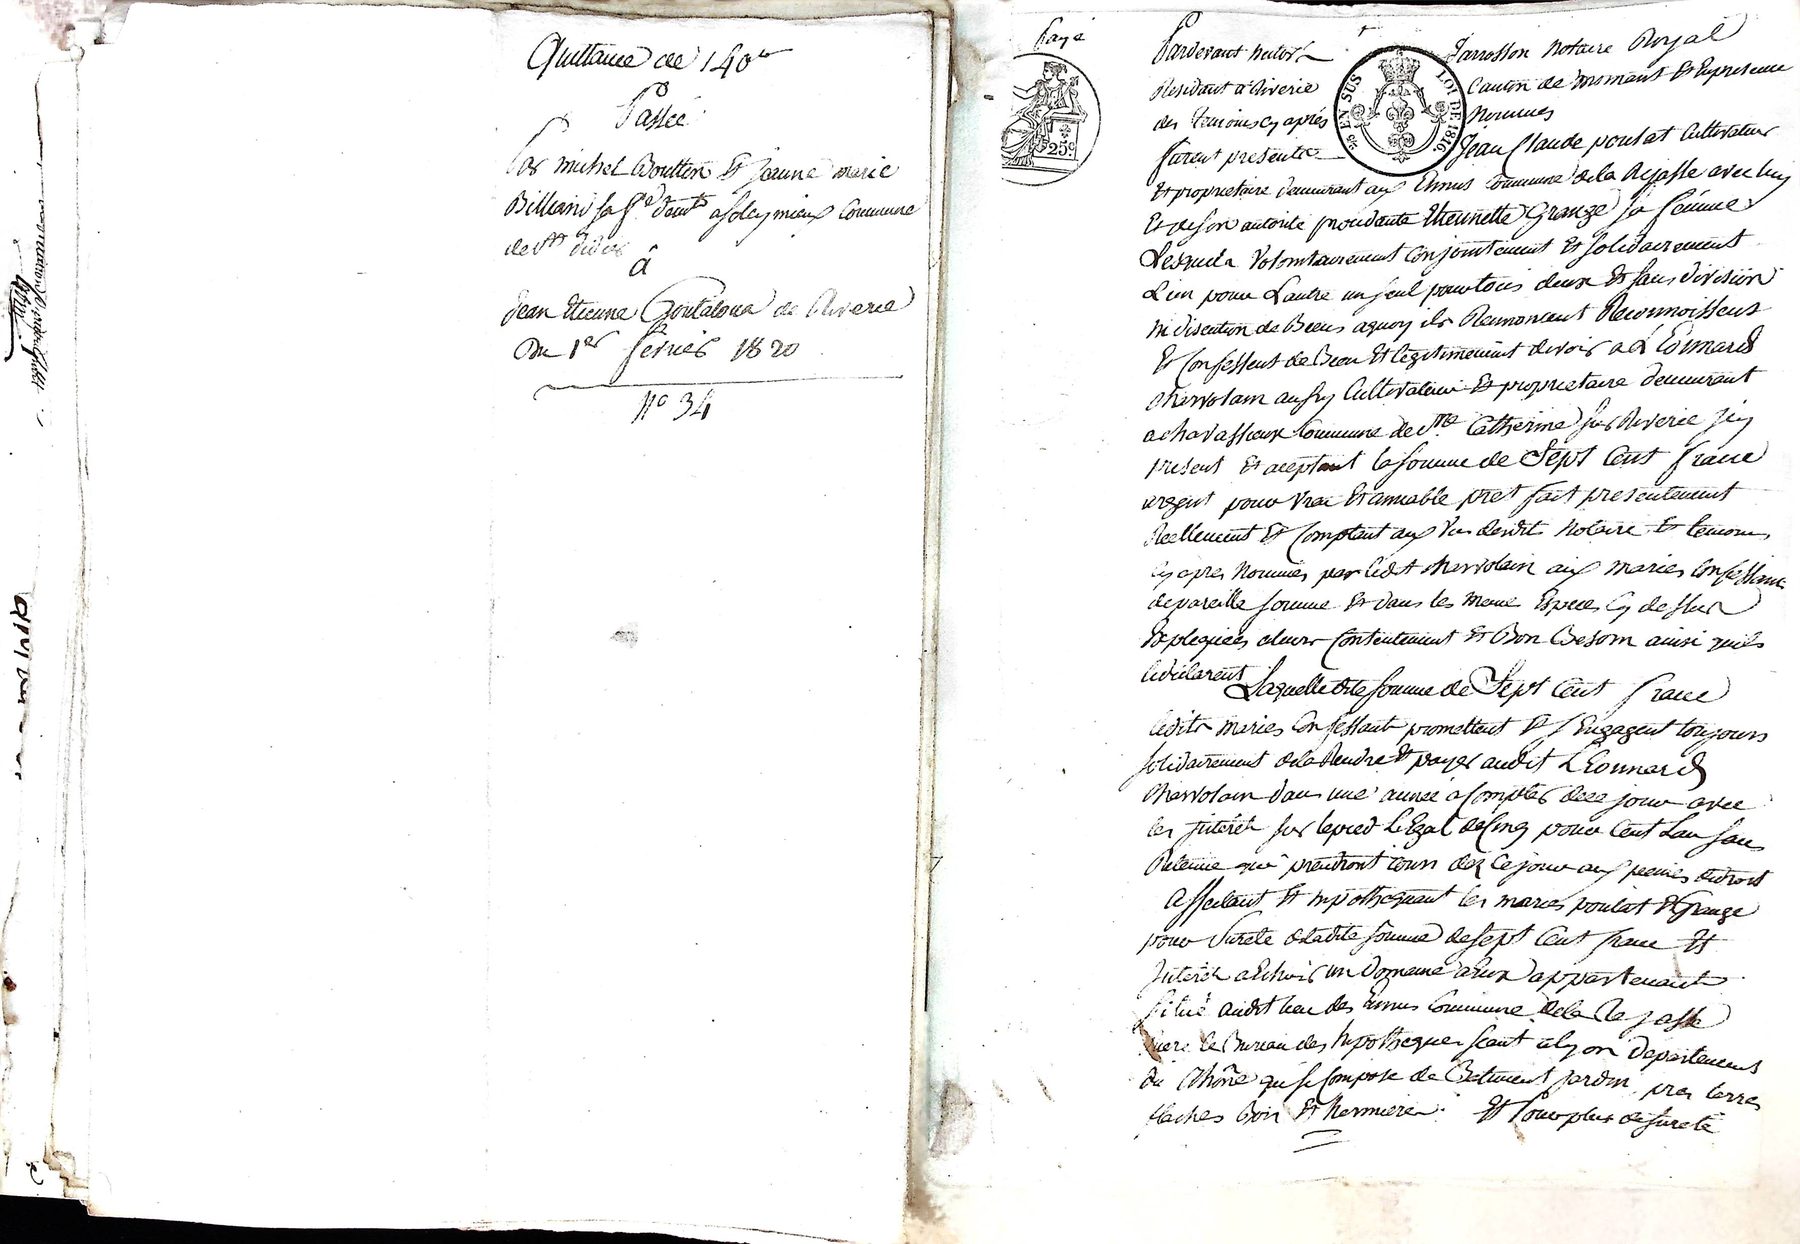 Quittance de 140 tt
Passée
Par michel Bouttin Et jeanne marie
Billiard sa fe demts a soleymieux Commune
de st didier
à
Jean Etienne Goutalona de Riverie
Du 1er fevrier 1820
N° 34
Payé
25c
EN SUS LOI DE 1816
Pardevant Jarrosson Notaire Royal
Résidant a Riverie Canton de mornant Et En presence
des temoins cy après Nommés
furent presents Jean Claude poulat Cultivateur
Et proprietaire demeurant aux Ennus Commune de la Rajasse avec luy
Et de son autorité procedante Etiennette Grange sa femme
Lesquels Volontairement Conjointement Et solidairement
L'un pour L'autre un seul pour tous deux Et sans division
ni discution de Biens aquoy ils Renoncent Reconnoissent
Et Confessent de bien Et legitimement devoir a Léonnard
Chervolain aussy Cultivateur Et proprietaire demeurant
a chavassieux Commune de ste Catherine sur Riverie jcy
present Et aceptant la somme de Sept Cent franc
argent pour Vrai Et amiable pret fait presentement
Reellement Et Comptant aux Vus desdits Notaire Et temoins
cy apres Nommés par ledit chervolain aux mariés Confessants
de pareille somme Et dans les meme Especes Cy dessus
Expliquées a leur Contentement Et Bon Besoin ainsi quils
le déclarent
Laquelle dite somme de Sept Cent franc
lesdits mariés Confessant promettent Et s'Engagent toujours
solidairement de la Rendre Et payer audit Léonnard
Chervolain dans une année a Compter de ce jour avec
les jntérêt sur le pied LeEgal de Cinq pour Cent L'an sans
Retenue qui prendront cours dez Ce jour aux peines de droit
Affectant Et hypothequant les mariés poulat Et Grange
pour sureté de ladite somme de sept Cent franc Et
jntérêt a Echoir un Domaine a Eux appartenant
situé audit lieu des Ennus Commune de la Rejasse
le Bureau des hypotheques seant a lyon Departement
du Rhône qui se Compose de Batiment jardin pres terres
Paches bois Et hermieres. Et pour plus de sureté